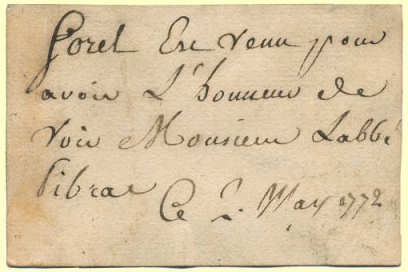 Goret Est venu pour
avoir L'honneur de
voir Monsieur Labbé
pibrac
Ce 2. May 1772